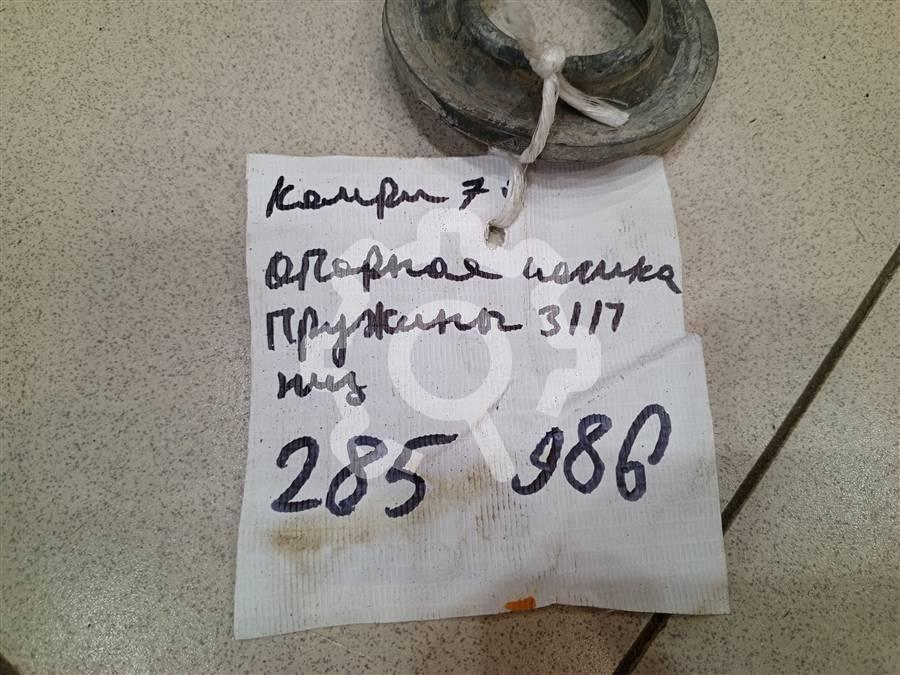 Камри 7
опорная чашка
пружины З/П
низ
285 986